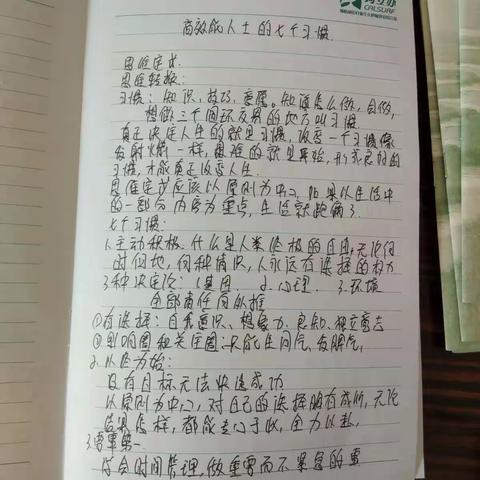 CALSURF
高效能人士的七个习惯
思维定式
思维转换：
习惯：知识，技巧，意愿。知道怎么做，会做，
想做三个圆环交界的地方叫习惯
真正决定人生的就是习惯，改变一个习惯像
发射火箭一样，思维的就是开始，形成良好的
习惯，才能真正改变人生。
思维定式应该以原则为中心，如果以生活中
的一部分内容为重点，生活就跑偏了
七个习惯：
1.主动积极 什么是人类终极的自由，无论何
时何地，何种情况，人永远有选择的权力
3种决定论：1.基因. 2.心理. 3.环境
全部责任向外推
①有选择：自我意识、想象力、良知、独立意志
②影响圈和关注圈：只能生闷气，发脾气
2.以终为始：
没有目标无法快速成功
以原则为中心，对自己的选择胸有成竹，无论
结果怎样，都能专心于此，全力以赴
3.要事第一
符合时间管理，做重要而不紧急的事